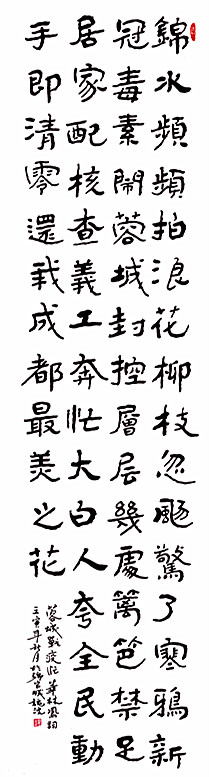 錦水頻頻拍浪花柳枝忽驚了寒鴉新
冠毒素鬧蓉城封控層层幾處篱笆禁足
居家配核查義工奔忙大白人夸全民動
手即清零還我成都最美之花
蓉城戰疫忙
壬寅年秋月於錦官城